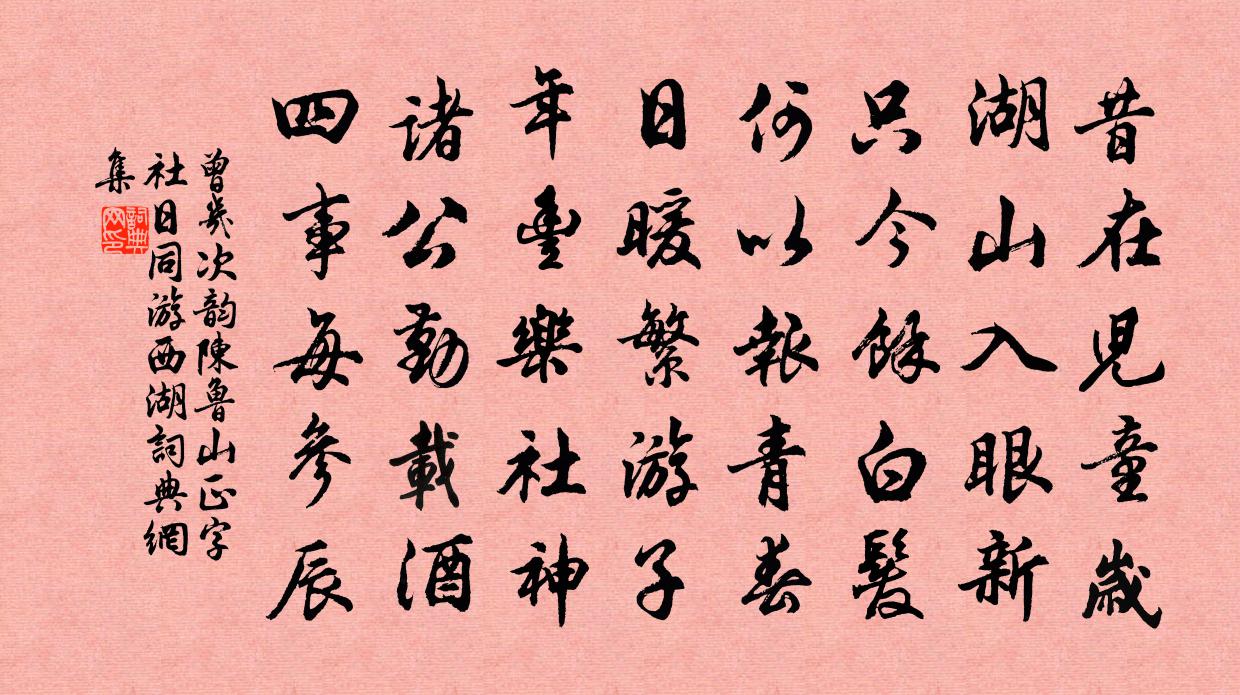 昔在児童歳
湖山入眼新
只今餘白髮
何以報青春
日暖繁游子
年豐樂社神
諸公勤載酒
四事每參辰
曾幾次韵陳魯山正字
社日同游西湖詞典網
集
詞典網印